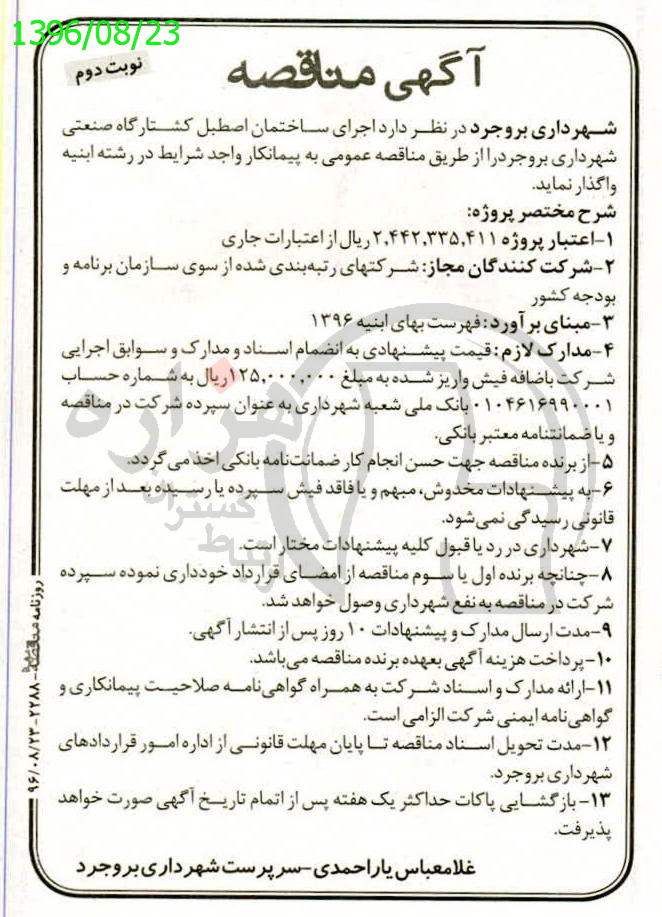 1396/08/23
نوبت دوم
آگهی مناقصه
شهرداری بروجرد در نظر دارد اجرای ساختمان اصطبل کشتارگاه صنعتی
شهرداری بروجرد را از طریق مناقصه عمومی به پیمانکار واجد شرایط در رشته ابنیه
واگذار نماید.
شرح مختصر پروژه:
۱-اعتبار پروژه ۲,۴۴۲,۳۳۵,۴۱۱ ریال از اعتبارات جاری
۲-شرکت کنندگان مجاز: شرکتهای رتبه‌بندی شده از سوی سازمان برنامه و
بودجه کشور
۳-مبنای برآورد: فهرست بهای ابنیه ۱۳۹۶
۴-مدارک لازم: قیمت پیشنهادی به انضمام اسناد و مدارک و سوابق اجرایی
شرکت باضافه فیش واریز شده به مبلغ ۱۲۵,۰۰۰,۰۰۰ ریال به شماره حساب
۰۱۰۴۶۱۶۹۹۰۰۰۱ بانک ملی شعبه شهرداری به عنوان سپرده شرکت در مناقصه
و یا ضمانتنامه معتبر بانکی.
۵-از برنده مناقصه جهت حسن انجام کار ضمانت‌نامه بانکی اخذ می گردد.
۶-به پیشنهادات مخدوش، مبهم و یا فاقد فیش سپرده یا رسیده بعد از مهلت
قانونی رسیدگی نمی‌شود.
۷-شهرداری در رد یا قبول کلیه پیشنهادات مختار است.
۸-چنانچه برنده اول یا سوم مناقصه از امضای قرارداد خودداری نموده سپرده
شرکت در مناقصه به نفع شهرداری وصول خواهد شد.
۹-مدت ارسال مدارک و پیشنهادات ۱۰ روز پس از انتشار آگهی.
۱۰-پرداخت هزینه آگهی بعهده برنده مناقصه می‌باشد.
۱۱-ارائه مدارک و اسناد شرکت به همراه گواهی‌نامه صلاحیت پیمانکاری و
گواهی‌نامه ایمنی شرکت الزامی است.
۱۲-مدت تحویل اسناد مناقصه تا پایان مهلت قانونی از اداره امور قراردادهای
شهرداری بروجرد.
۱۳-بازگشایی پاکات حداکثر یک هفته پس از اتمام تاریخ آگهی صورت خواهد
پذیرفت.
غلامعباس یاراحمدی-سرپرست شهرداری بروجرد
روزنامه مناقصه - ۲۲۸۸ - ۹۶/۰۸/۲۳
هزاره